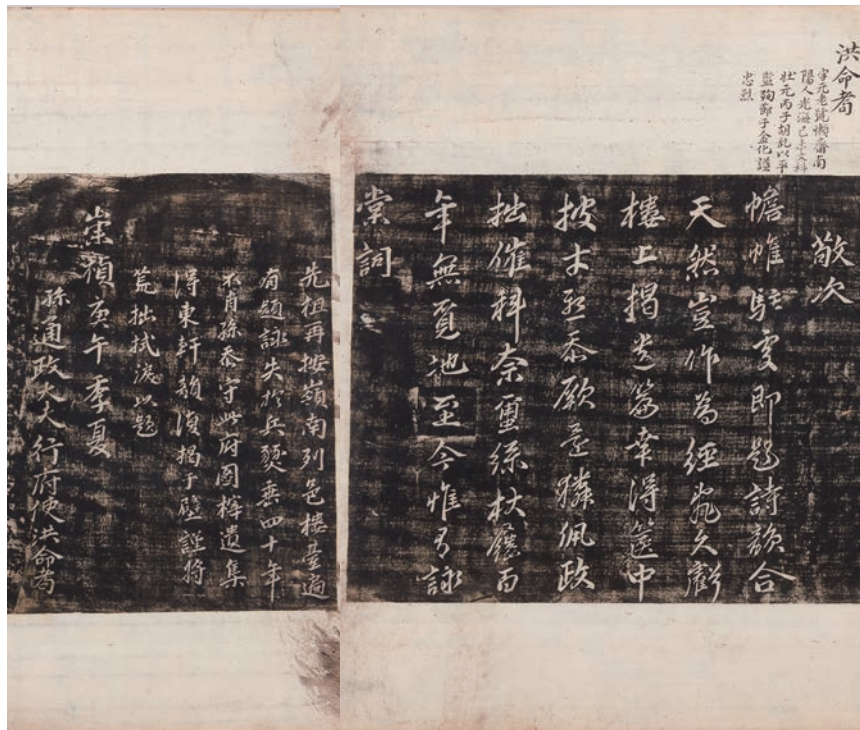 洪命耉
字元老號懶齋南
陽人光海己未文科
壯元丙子胡亂以平
監殉節于金化諡
忠烈
敬次
幨帷駐處即題詩韻合
天然豈作爲經亂久虧
樓上揭遺篇幸得篋中
披才忝厥麟佩政
拙催科奈繭絲杖屨百
年無覓地至今惟有詠
棠詞
先祖再按嶺南列邑樓臺遍
有題詠失於兵燹垂四十年
不肖孫忝守此府圖梓遺集
得東軒韻復揭于壁謹將
荒拙拭淚以題
崇禎庚午季夏
孫通政大夫行府使洪命耉